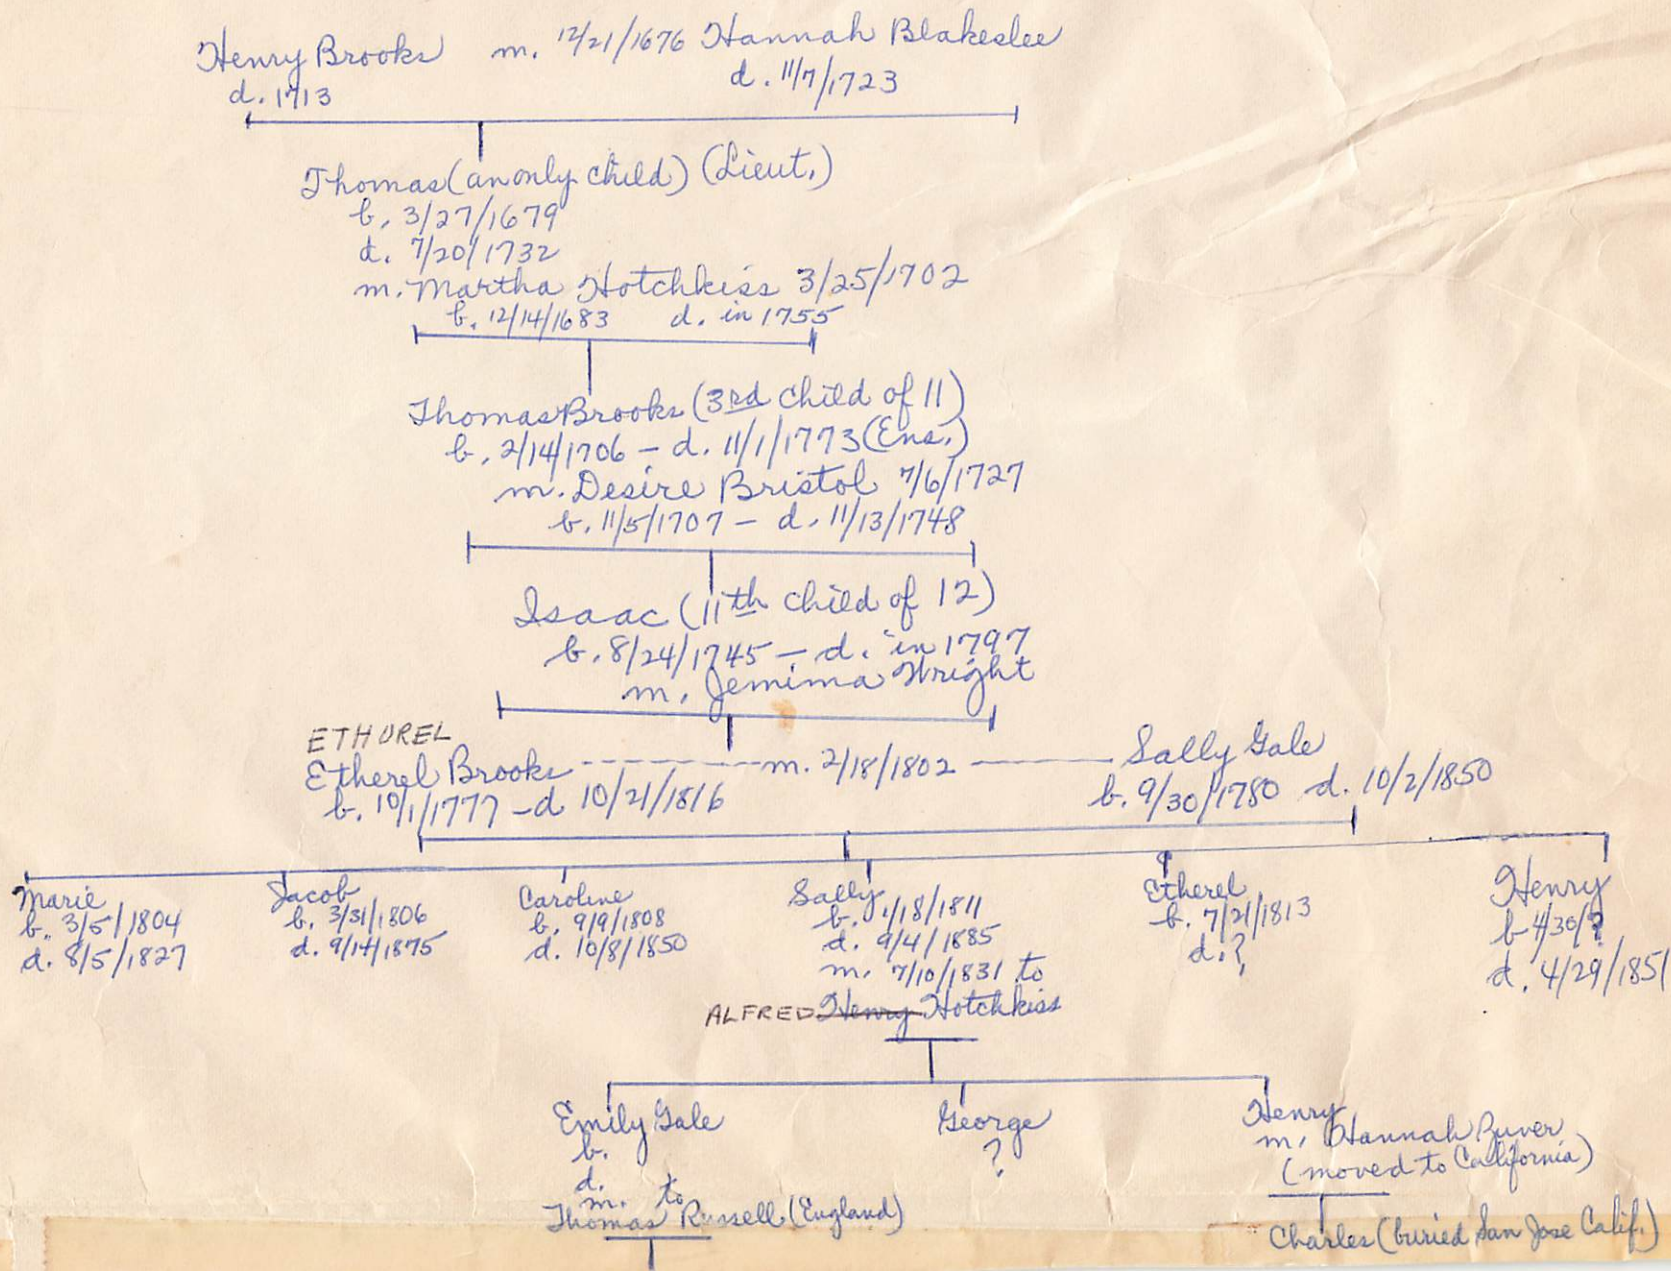 Henry Brooks m. 12/21/1676 Hannah Blakeslee
d. 1713 d. 11/7/1723
Thomas (an only child) (Lieut.)
b. 3/27/1679
d. 7/20/1732
m. Martha Hotchkiss 3/25/1702
b. 12/14/1683 d. in 1755
Thomas Brooks (3rd child of 11)
b. 2/14/1706 – d. 11/1/1773 (Ens.)
m. Desire Bristol 7/6/1727
b. 11/5/1707 – d. 11/13/1748
Isaac (11th child of 12)
b. 8/24/1745 – d. in 1797
m. Jemima Wright
ETHUREL
Etherel Brooks m. 2/18/1802 Sally Gale
b. 10/1/1777 – d 10/21/1816 b. 9/30/1780 d. 10/2/1850
Marie
b. 3/5/1804
d. 8/5/1827
Jacob
b. 3/31/1806
d. 9/14/1875
Caroline
b. 9/9/1808
d. 10/8/1850
Sally
b. 1/18/1811
d. 9/4/1885
m. 7/10/1831 to
ALFRED Henry Hotchkiss
Etherel
b. 7/21/1813
d. ?
Henry
b 4/30/?
d. 4/29/1851
Emily Gale
b.
d.
m. to
Thomas Russell (England)
George
?
Henry
m. Hannah
(moved to California)
Charles (buried San Jose Calif.)